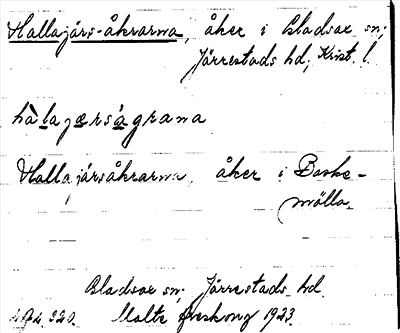 Hallajärs-åkrarna, åker i Gladsax sn;
Järrestads hd; Krist. l.
hàlajærságrana
Hallajärsåkrarna, åker i Baske-
mölla.
Gladsax sn; Järrestads hd.
320. Malte Areskoug 1923.